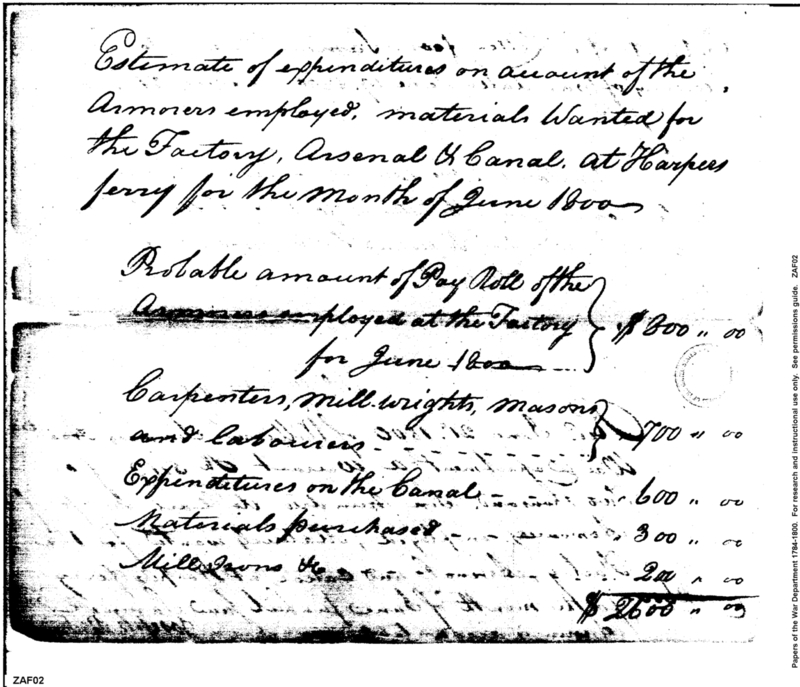 Estimate of expenditures on account of the
Armorers employed, materials Wanted for
the Factory, Arsenal & Canal, at Harpers
ferry for the Month of June 1800
Probable amount of Pay Roll of the
Armorers employed at the Factory
for June 1800
$ 800 " 00
Carpenters, Mill-wrights, Masons
and labourers
" 700 " 00
Expenditures on the Canal - " 600 " 00
Materials purchased " 300 " 00
Mill Irons &c 200 " 00
$ 2600 " 00
Papers of the War Department 1784-1800. For research and instructional use only. See permissions guide. ZAF02
ZAF02